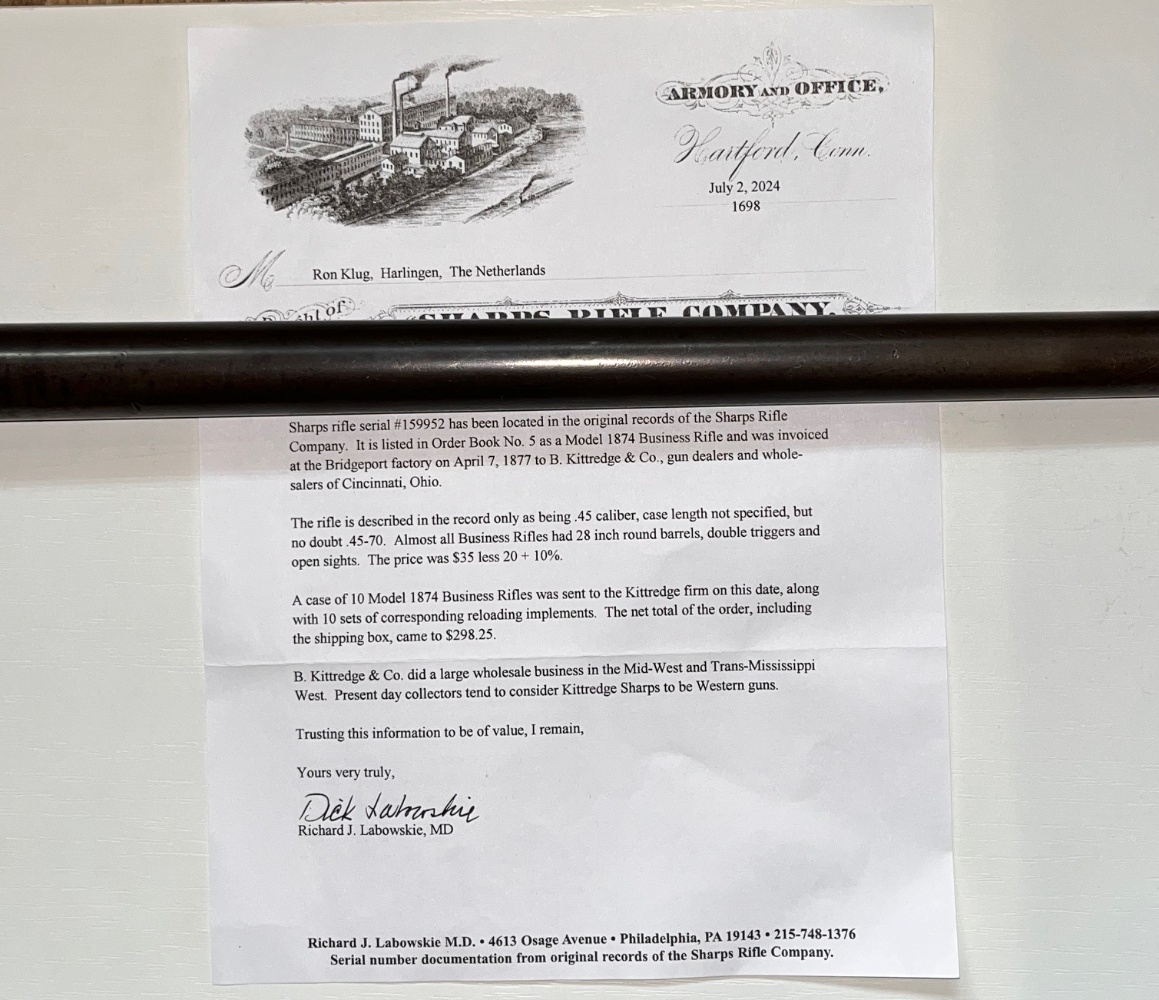 ARMORY AND OFFICE,
Hartford, Conn.
July 2, 2024
1698
M Ron Klug, Harlingen, The Netherlands
of
"SHARPS RIFLE COMPANY.
Sharps rifle serial #159952 has been located in the original records of the Sharps Rifle
Company. It is listed in Order Book No. 5 as a Model 1874 Business Rifle and was invoiced
at the Bridgeport factory on April 7, 1877 to B. Kittredge & Co., gun dealers and whole-
salers of Cincinnati, Ohio.
The rifle is described in the record only as being .45 caliber, case length not specified, but
no doubt .45-70. Almost all Business Rifles had 28 inch round barrels, double triggers and
open sights. The price was $35 less 20 + 10%.
A case of 10 Model 1874 Business Rifles was sent to the Kittredge firm on this date, along
with 10 sets of corresponding reloading implements. The net total of the order, including
the shipping box, came to $298.25.
B. Kittredge & Co. did a large wholesale business in the Mid-West and Trans-Mississippi
West. Present day collectors tend to consider Kittredge Sharps to be Western guns.
Trusting this information to be of value, I remain,
Yours very truly,
Dick Labowskie
Richard J. Labowskie, MD
Richard J. Labowskie M.D. • 4613 Osage Avenue • Philadelphia, PA 19143 • 215-748-1376
Serial number documentation from original records of the Sharps Rifle Company.